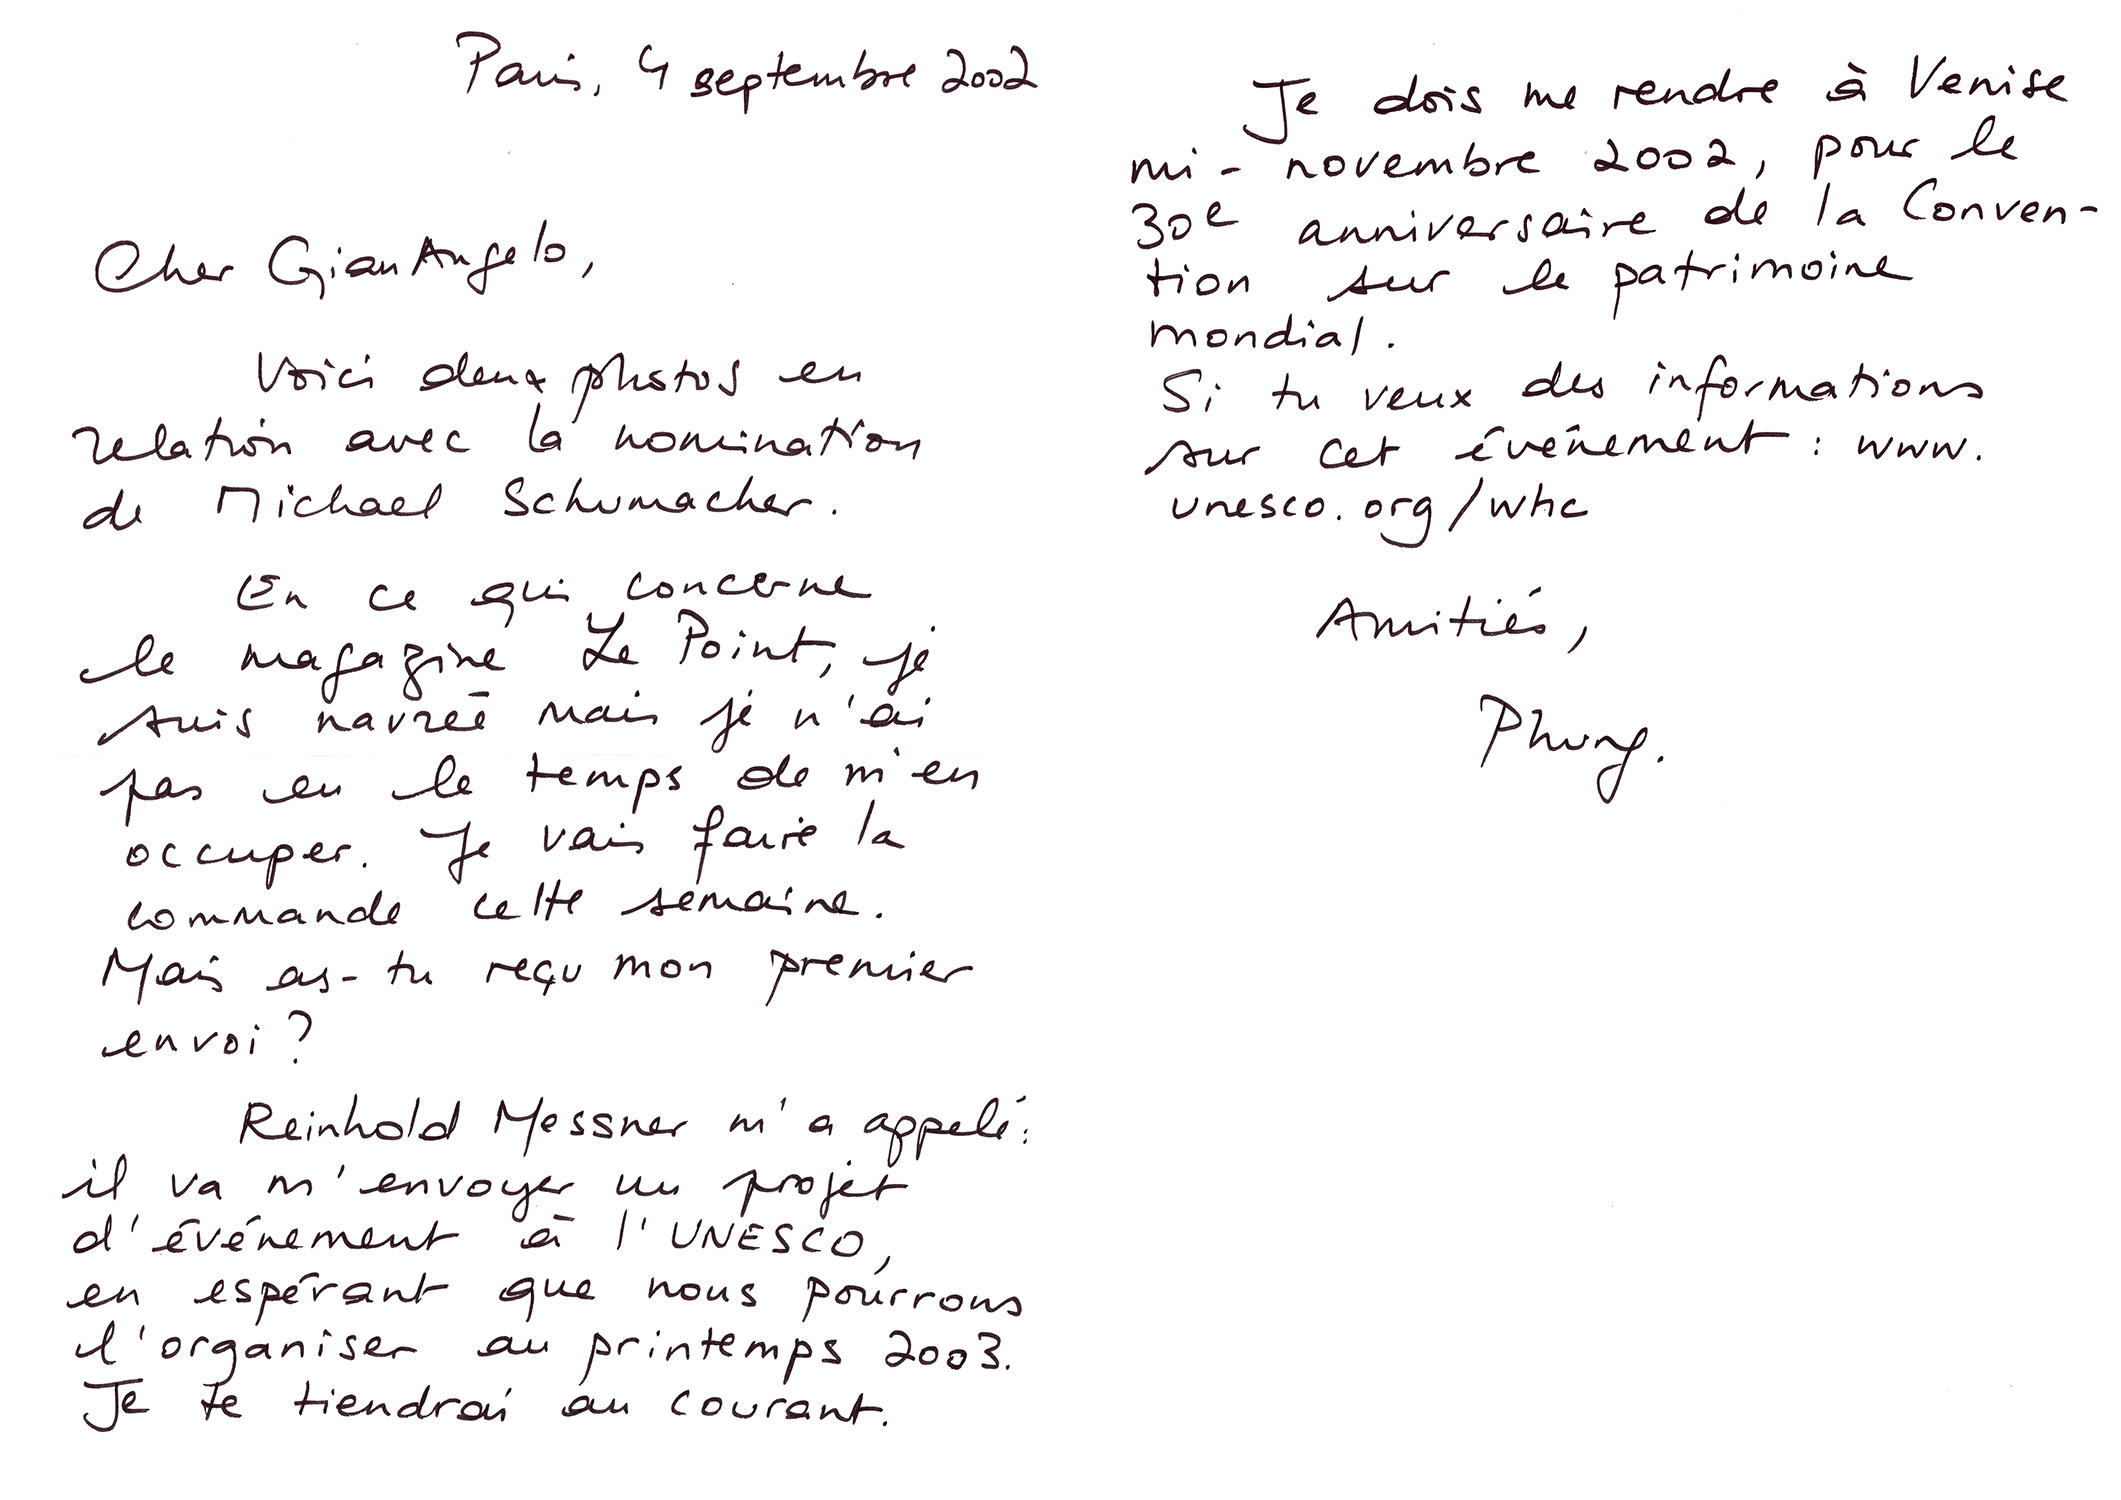 Paris, 4 septembre 2002
Cher GianAngelo,
Voici deux photos en
relation avec la nomination
de Michael Schumacher.
En ce qui concerne
le magazine Le Point, je
suis navrée mais je n'ai
pas eu le temps de m'en
occuper. Je vais faire la
commande cette semaine.
Mais as-tu reçu mon premier
envoi ?
Reinhold Messner m'a appelé :
il va m'envoyer un projet
d'événement à l'UNESCO,
en espérant que nous pourrons
l'organiser au printemps 2003.
Je te tiendrai au courant.
Je dois me rendre à Venise
mi-novembre 2002, pour le
30e anniversaire de la Conven-
tion sur le patrimoine
mondial.
Si tu veux des informations
sur cet événement : www.
unesco.org/whc
Amitiés,
Phung.